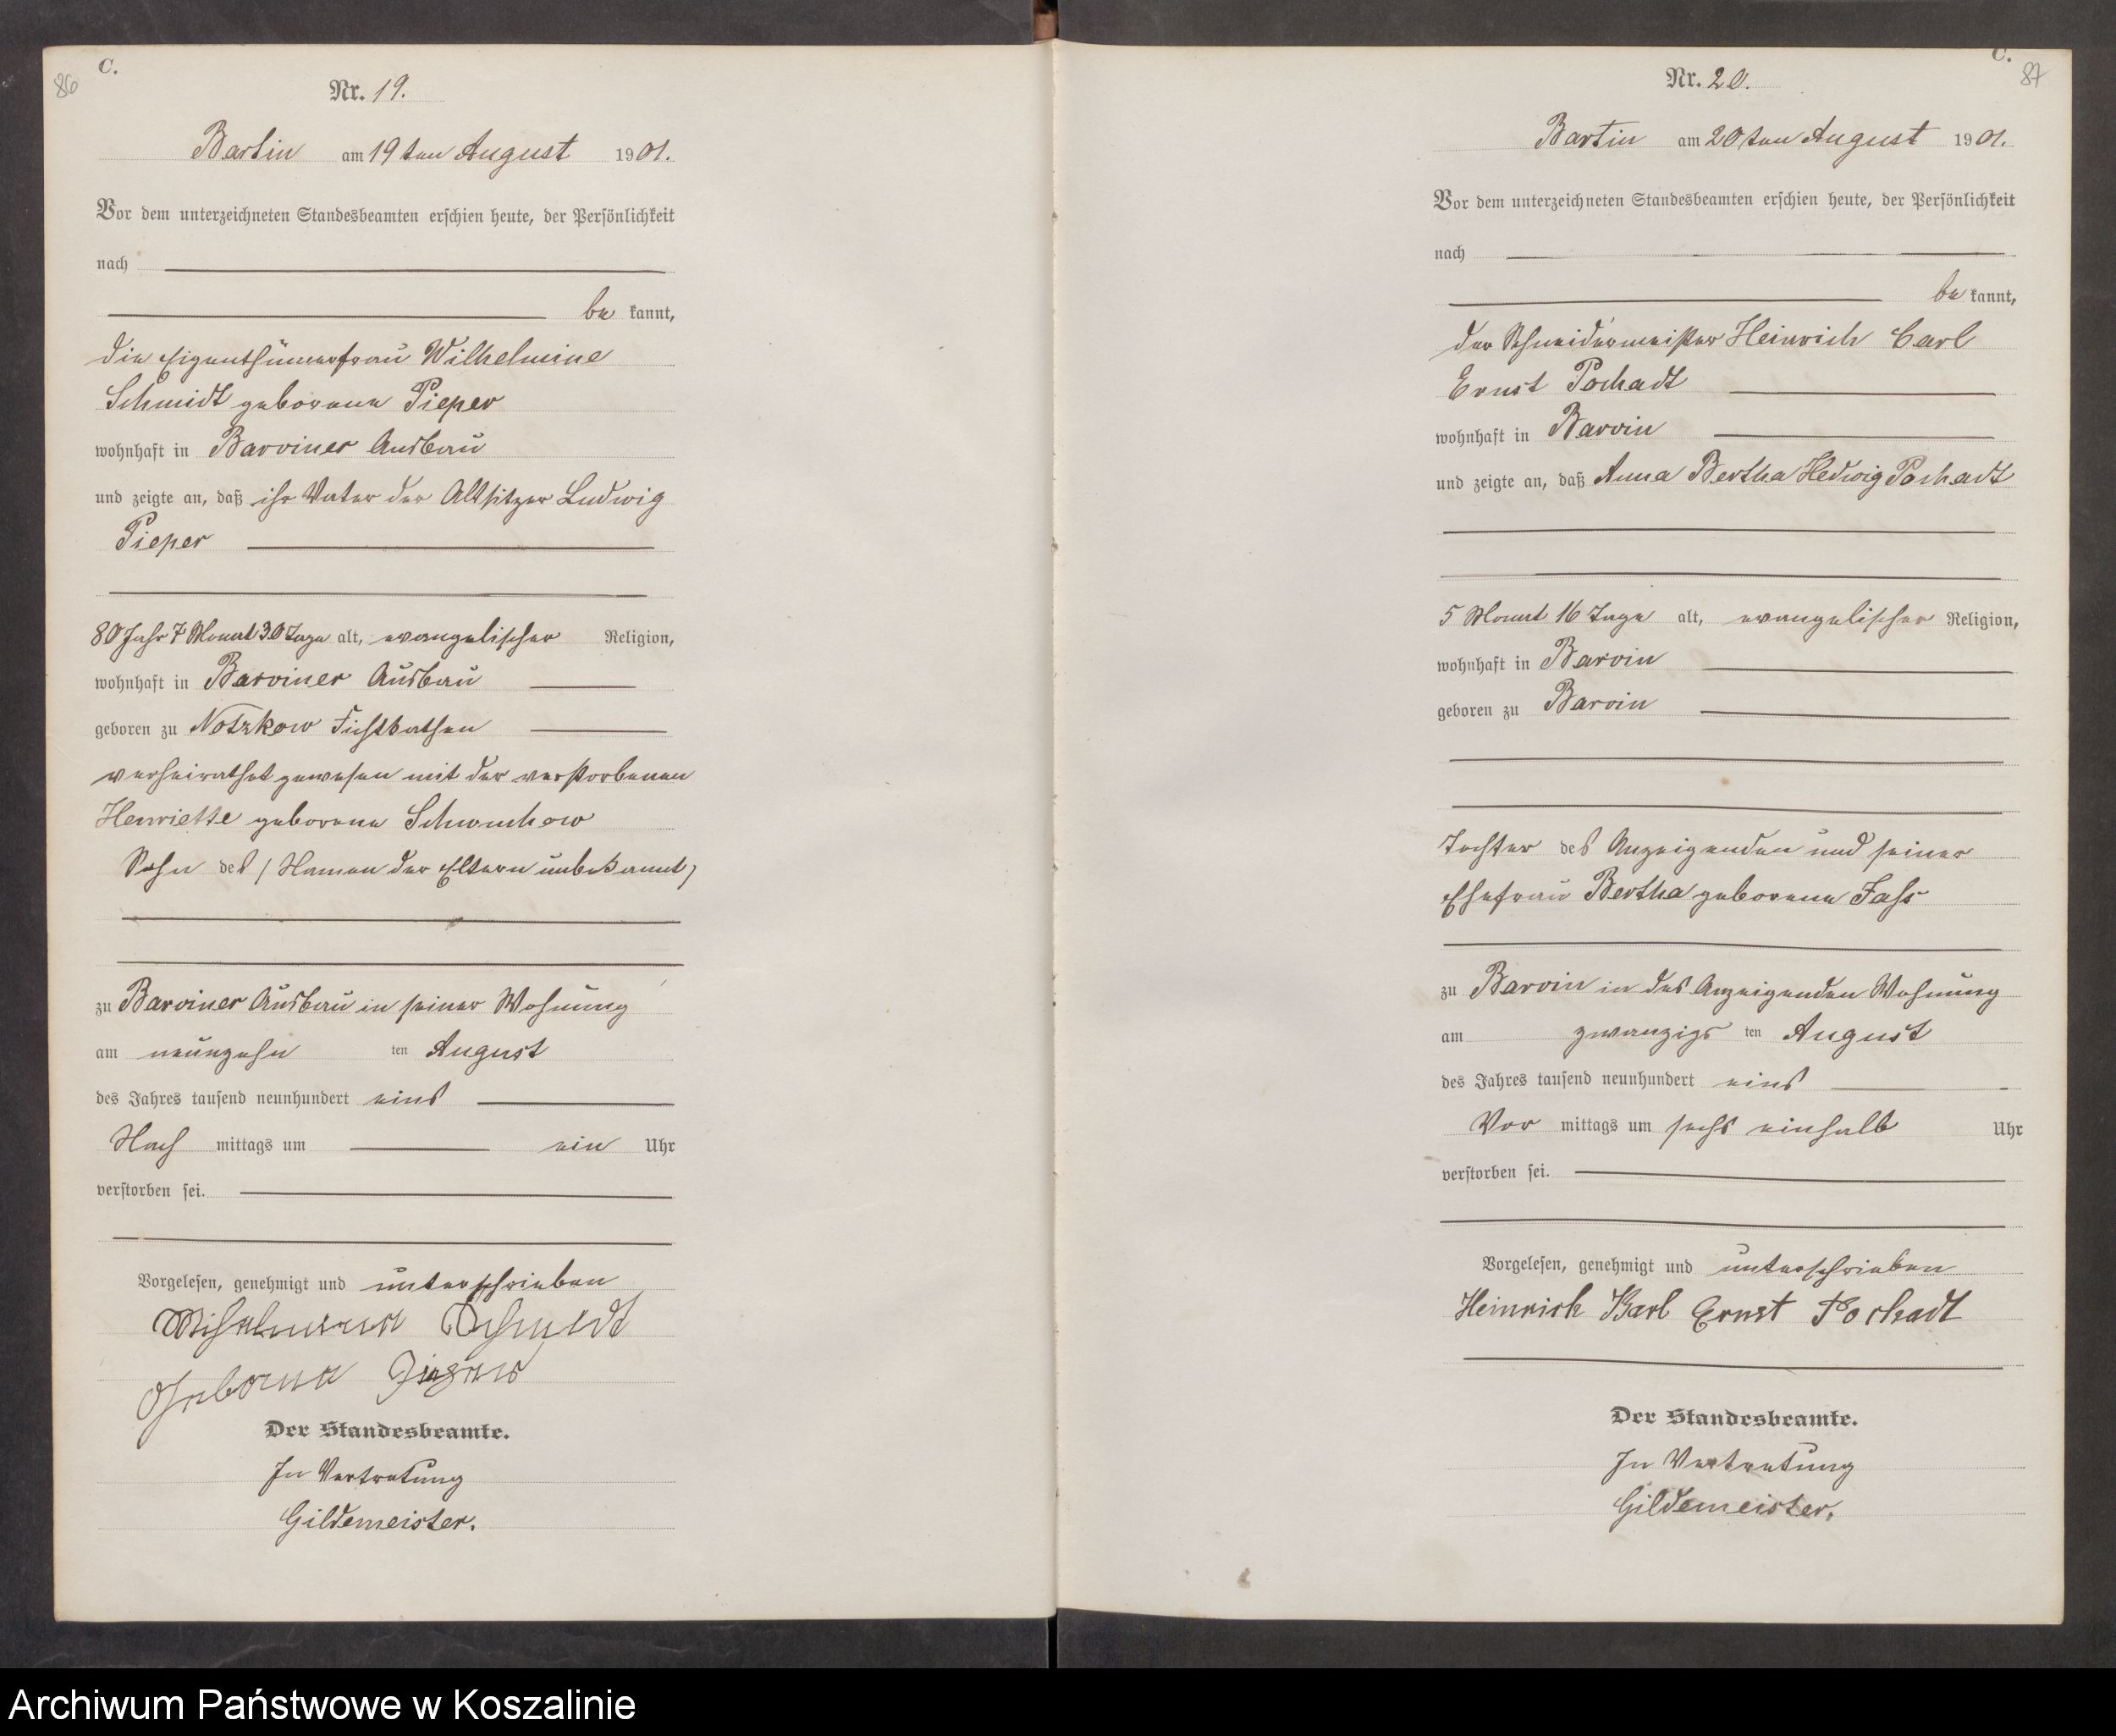 86
C.
Nr. 19.
Bartin am 19ten August 1901.
Vor dem unterzeichneten Standesbeamten erschien heute, der Persönlichkeit
nach
be kannt,
die Eigenthümerfrau Wilhelmine
Schmidt geborene Pieper
wohnhaft in Barviner Ausbau
und zeigte an, daß ihr Vater der Altsitzer Ludwig
Pieper
80 Jahr 7 Monat 30 Tage alt, evangelischer Religion,
wohnhaft in Barviner Ausbau
geboren zu Notzkow
verheirathet gewesen mit der verstorbenen
Henriette geborene
Sohn des (Namen der Eltern unbekannt)
zu Barviner Ausbau in seiner Wohnung
am neunzehn ten August
des Jahres tausend neunhundert eins
Nach mittags um ein Uhr
verstorben sei.
Vorgelesen, genehmigt und unterschrieben
Wilhelmine Schmidt
Geborne Pieper
Der Standesbeamte.
In Vertretung
Gildemeister.
C.
87
Nr. 20.
Bartin am 20ten August 1901.
Vor dem unterzeichneten Standesbeamten erschien heute, der Persönlichkeit
nach
be kannt,
der Schneidermeister Heinrich Carl
Ernst Pochadt
wohnhaft in Barvin
und zeigte an, daß Anna Bertha Hedwig Pochadt
5 Monat 16 Tage alt, evangelischer Religion,
wohnhaft in Barvin
geboren zu Barvin
Tochter des Anzeigenden und seiner
Ehefrau Bertha geborene Fahs
zu Barvin in des Anzeigenden Wohnung
am zwanzigs ten August
des Jahres tausend neunhundert eins
Vor mittags um sechs einhalb Uhr
verstorben sei.
Vorgelesen, genehmigt und unterschrieben
Heinrich Karl Ernst Pochadt
Der Standesbeamte.
In Vertretung
Gildemeister.
Archiwum Państwowe w Koszalinie